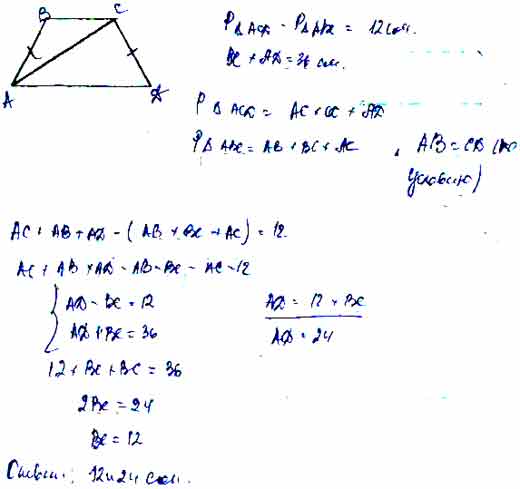 B C
A D
P△ACD - P△ABC = 12 см.
BC + AD = 36 см.
P△ACD = AC + CD + AD
P△ABC = AB + BC + AC, AB = CD (по
условию)
AC + AB + AD - (AB + BC + AC) = 12
AC + AB + AD - AB - BC - AC = 12
AD - BC = 12 AD = 12 + BC
AD + BC = 36 AD = 24
12 + BC + BC = 36
2BC = 24
BC = 12
12 и 24 см.